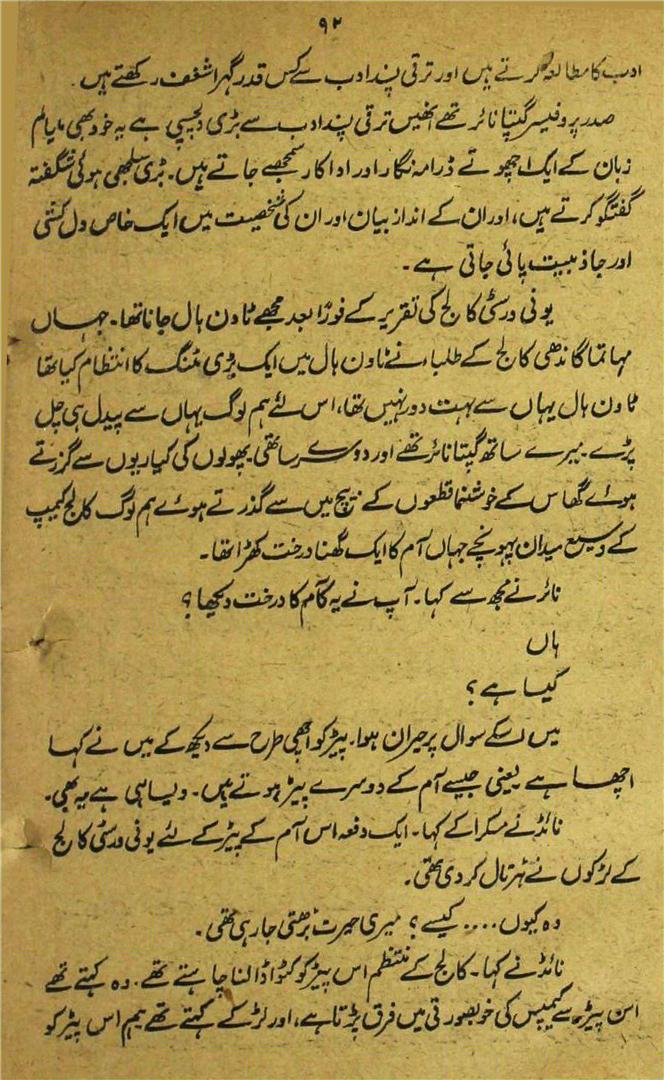 ۹۲
ادب کا مطالعہ کرتے ہیں اور ترقی پسند ادب سے کس قدر گہرا شغف رکھتے ہیں۔
صدر پروفیسر گپتا نائر تھے انھیں ترقی پسند ادب سے بڑی دلچسپی ہے یہ خود بھی ملیالم
زبان کے ایک اچھوتے ڈرامہ نگار اور اداکار سمجھے جاتے ہیں۔ بڑی سلجھی ہوئی شگفتہ
گفتگو کرتے ہیں، اور ان کے انداز بیان اور ان کی شخصیت میں ایک خاص دل کشی
اور جاذبیت پائی جاتی ہے۔
یونی ورسٹی کالج کی تقریر کے فوراً بعد مجھے ٹاون ہال جانا تھا۔ جہاں
مہاتما گاندھی کالج کے طلباء نے ٹاون ہال میں ایک بڑی مٹنگ کا انتظام کیا تھا
ٹاون ہال یہاں سے بہت دور نہیں تھا، اس لئے ہم لوگ یہاں سے پیدل ہی چل
پڑے۔ میرے ساتھ گپتا نائر تھے اور دوسرے ساتھی۔ پھولوں کی کیاریوں سے گزرتے
ہوئے گھاس کے خوشنما قطعوں کے بیچ میں سے گذرتے ہوئے ہم لوگ کالج کیمپ
کے وسیع میدان پہونچے جہاں آم کا ایک گھنا درخت کھڑا تھا۔
نائر نے مجھ سے کہا۔ آپ نے یہ آم کا درخت دیکھا؟
ہاں
کیسا ہے؟
میں اسکے سوال پر حیران ہوا۔ پیڑ کو اچھی طرح سے دیکھ کے میں نے کہا
اچھا ہے یعنی جیسے آم کے دوسرے پیڑ ہوتے ہیں۔ ویسا ہی ہے یہ بھی۔
نائڈ نے مسکرا کے کہا۔ ایک دفعہ اس آم کے پیڑ کے لئے یونی ورسٹی کالج
کے لڑکوں نے ہڑتال کر دی تھی۔
وہ کیوں.... کیسے؟ میری حیرت بڑھتی جا رہی تھی۔
نائڈ نے کہا۔ کالج کے منتظم اس پیڑ کو کٹوا ڈالنا چاہتے تھے۔ وہ کہتے تھے
اس پیڑ سے کیمپس کی خوبصورتی میں فرق پڑتا ہے، اور لڑکے کہتے تھے ہم اس پیڑ کو